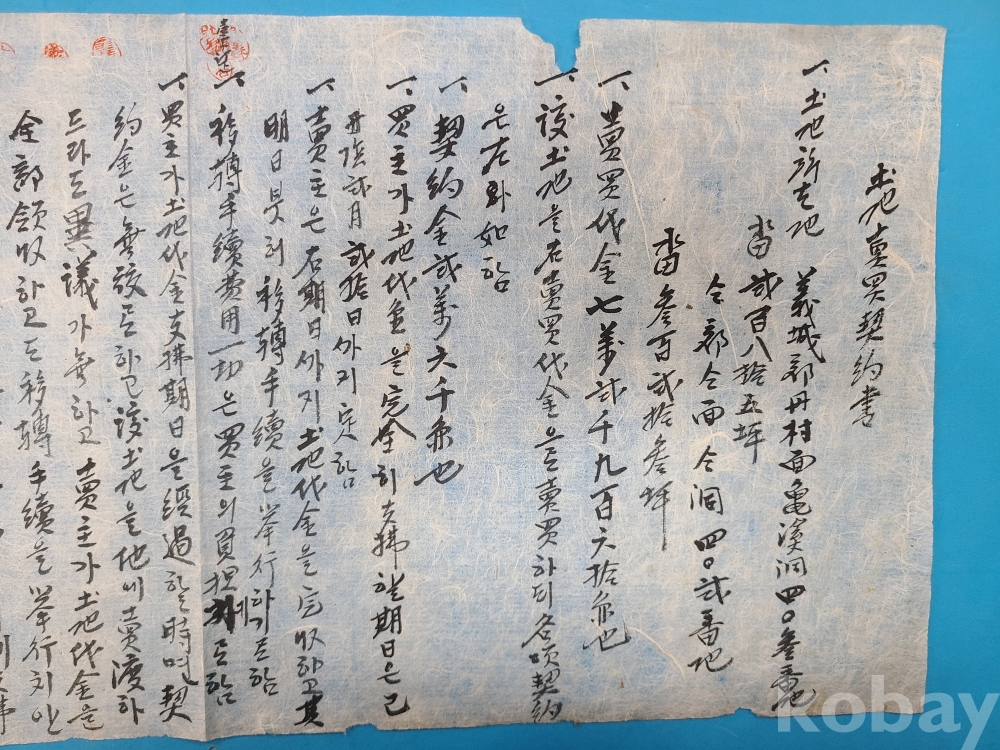 土地賣買契約書
一、土地所在地 義城郡丹村面龜溪洞四〇叄番地
畓 貳百八拾五坪
仝郡仝面仝洞四〇貳番地
畓 叄百貳拾叄坪
一、賣買代金七萬貳千九百六拾圓也
一、該土地을右賣買代金으로賣買하되各項契約
은左와如함
一、契約金貳萬六千圓也
一、買主가土地代金을完全히支拂할期日은己
丑陰貳月貳拾日外지定함
一、賣主은右期日外지土地代金을完収하고其
明日븟터移轉手續을擧行하기로함
一、移轉手續費用一切은買主의負担 로함
一、買主가土地代金支拂期日을經過할時며契
約金은無效로하고該土地을他에賣渡하
드라도異議가無하고賣主가土地代金을
全部領収하고도移轉手續을擧行치안
kobay